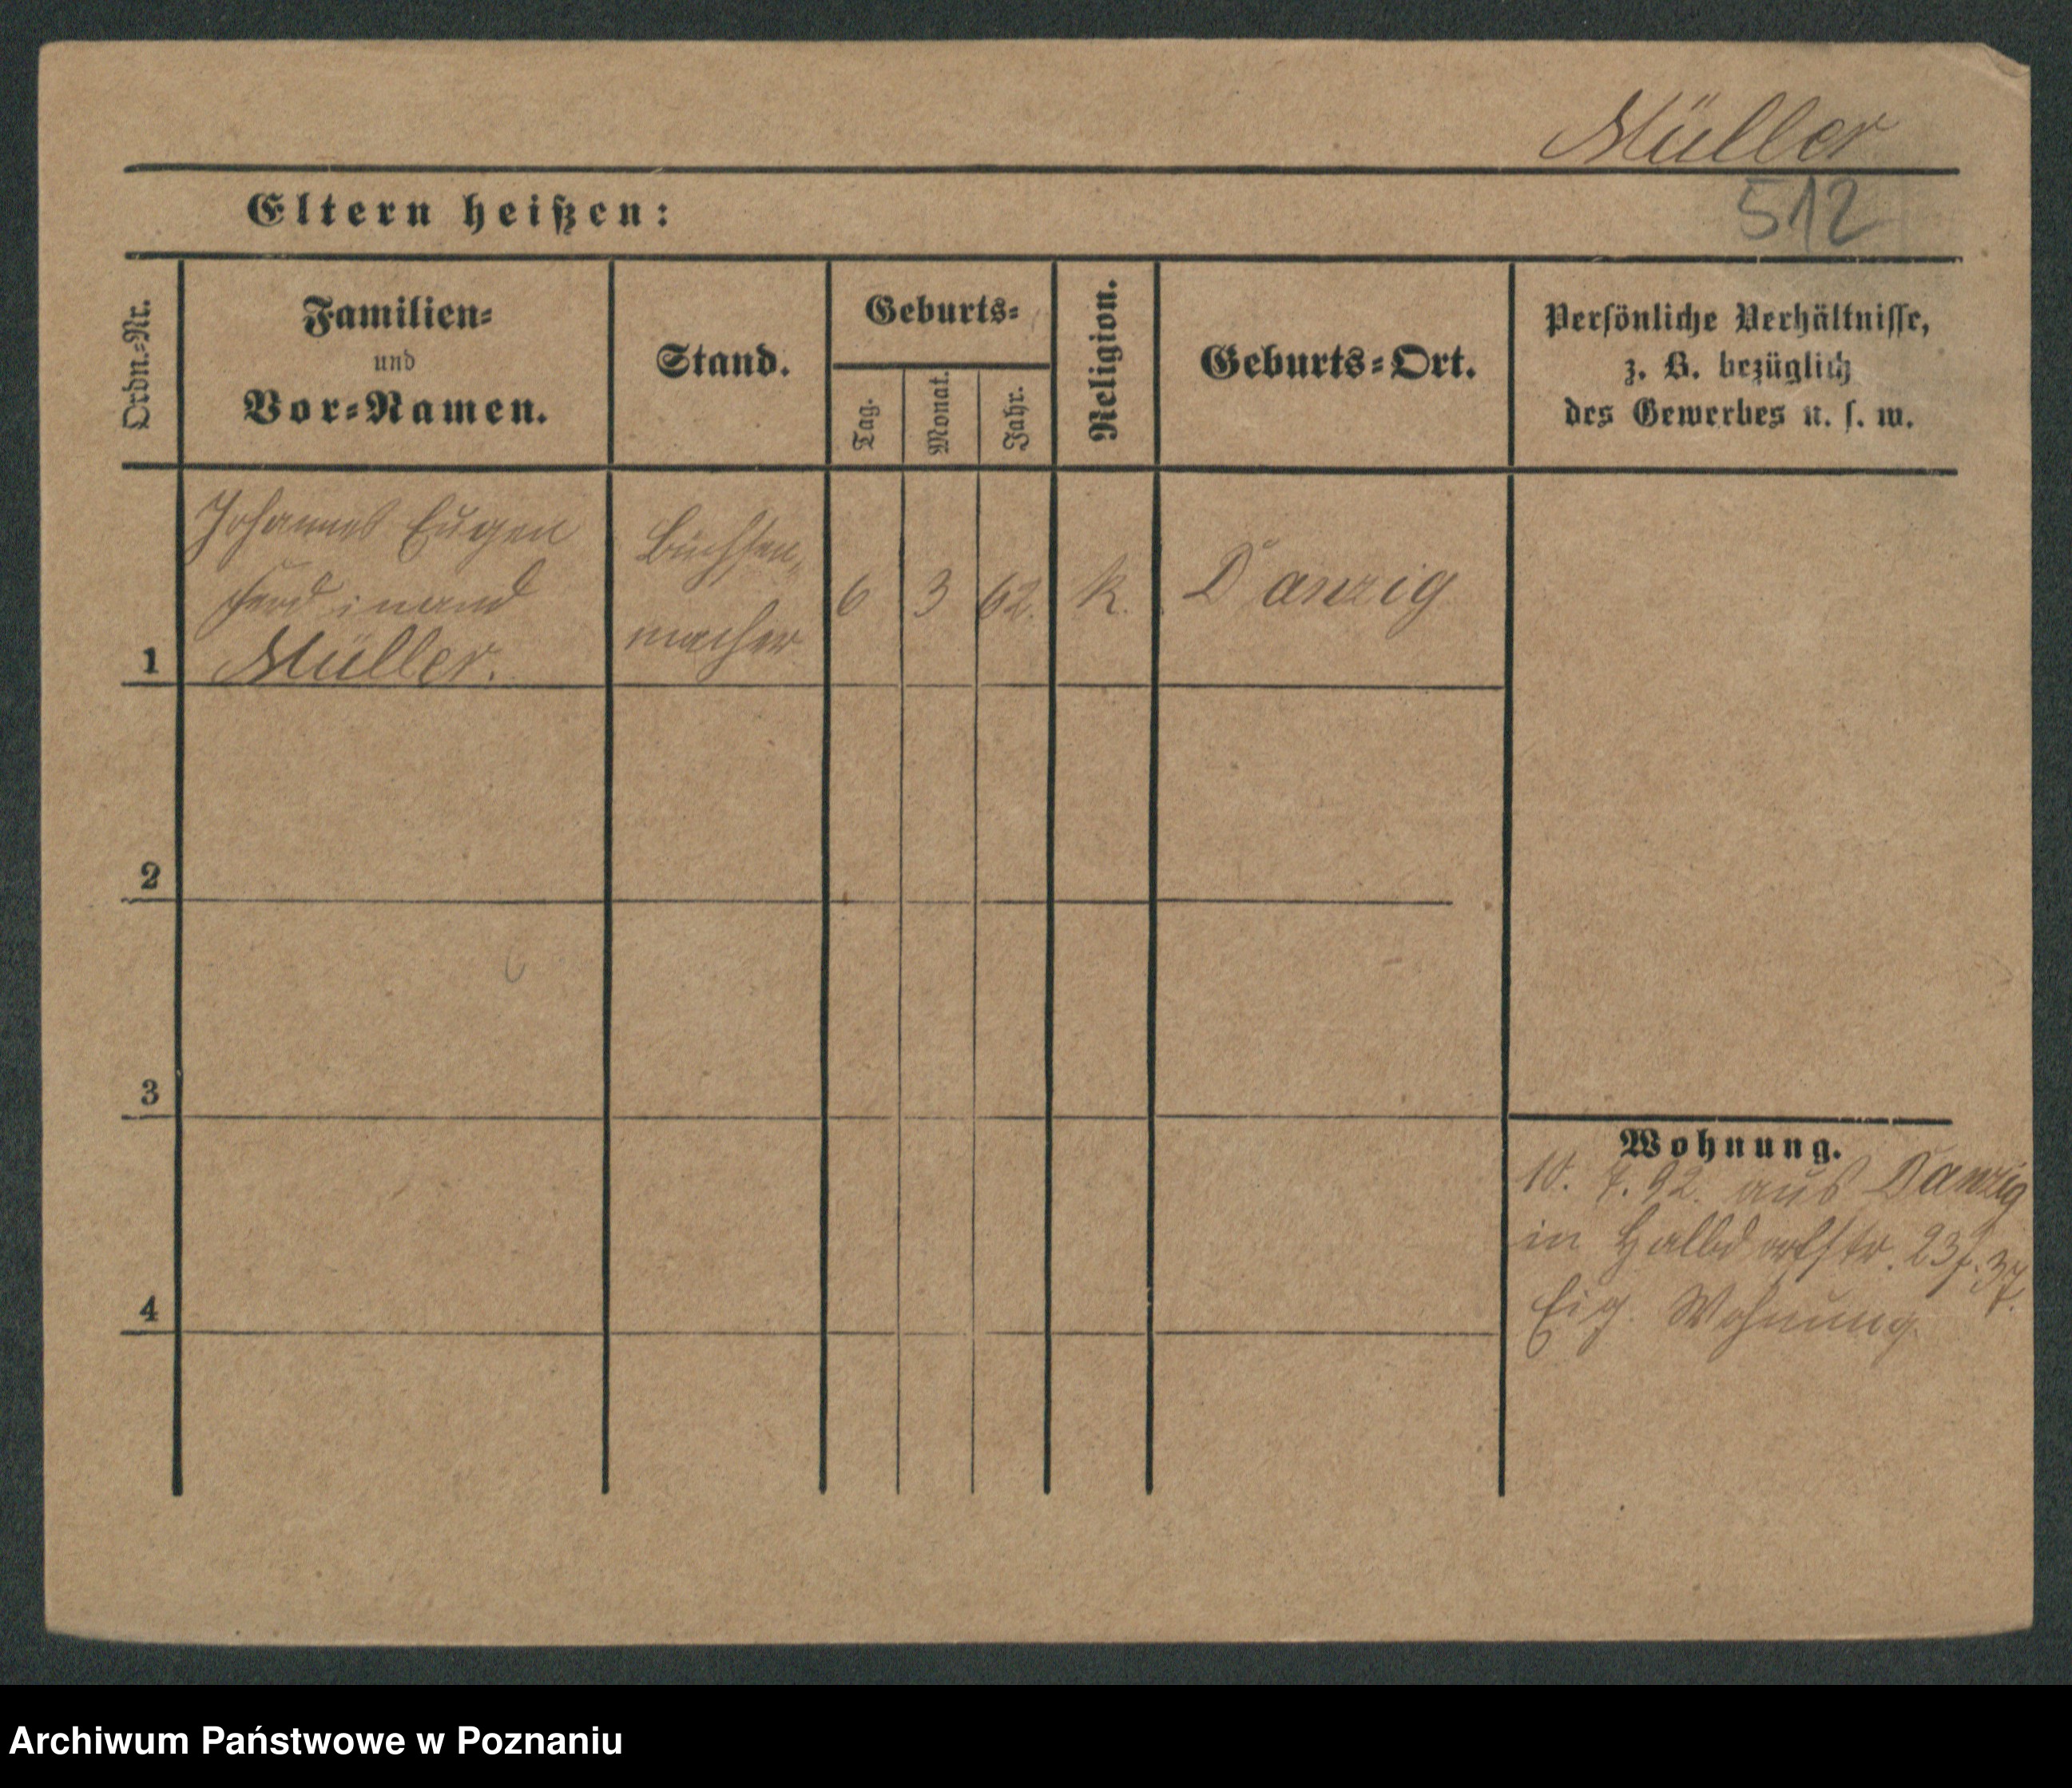 Müller
Eltern heißen:
512
Ordn.-Nr.
Familien-
und
Vor-Namen.
Stand.
Geburts-
Tag.
Monat.
Jahr.
Religion.
Geburts-Ort.
Persönliche Verhältnisse,
z. B. bezüglich
des Gewerbes u. s. w.
1
Johannes Eugen
Ferdinand
Müller.
Büchsen-
macher
6
3
62.
k.
Danzig
2
3
4
Wohnung.
10. 7. 92. aus Danzig
in Halbdorfstr.
Eig. Wohnung.
Archiwum Państwowe w Poznaniu